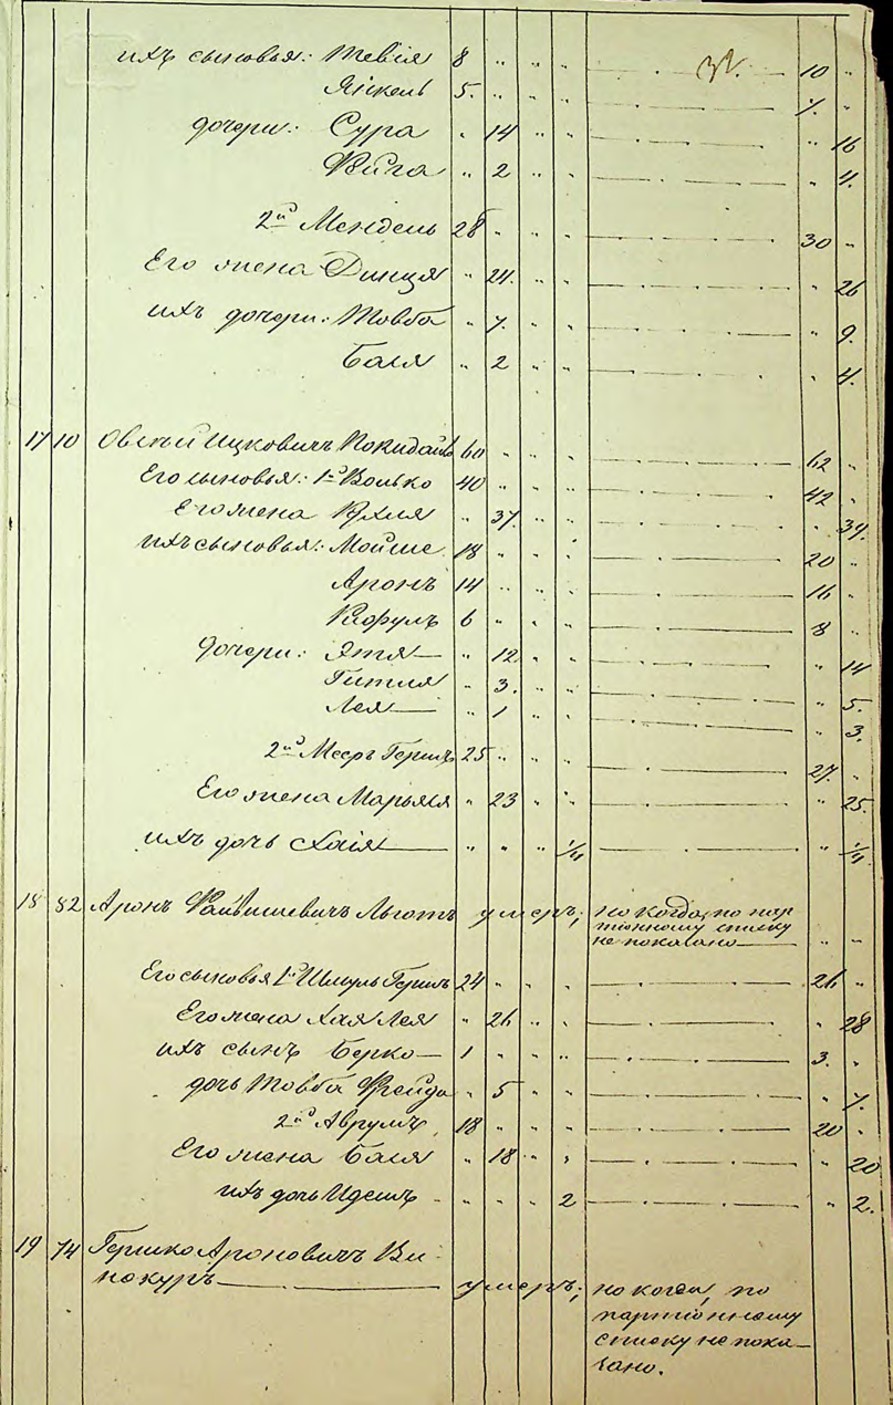 ихъ сыновья: Тевія 8 " " " 10 "
Янкель 5. " " " 7. "
дочери: Сура " 14 " " " 16
Фейга " 2 " " " 4.
2й Мендель 28 " " " 30 "
Его жена Динця " 24. " " " 26
ихъ дочери: Товба " 7. " " " 9.
Бася " 2 " " " 4.
17 10 Овсей Ицковичъ 60 " " " 62 "
Его сыновья: 1й Волько 40 " " " 42 "
Его жена " 37. " " " 39.
ихъ сыновья: Мойше 18 " " " 20 "
Аронъ 14 " " " 16 "
6 " " " 8 "
дочери: Этя " 12 " " " 14
Гитля " 3. " " " 5.
Лея " 1 " " " 3.
2й Мееръ Гершъ 25 " " " 27. "
Его жена Марьяся " 23 " " " 25.
ихъ дочь Хаія " " " 1/4 " 1/4.
18 82 Аронъ Файвишевичъ умеръ; но когда, по пар
тіонному списку
не показано " "
Его сыновья 1й Шмуль Гершъ 24 " " " 26 "
Его жена Хая Лея " 26 " " " 28
ихъ сынъ Берко 1 " " " 3. "
дочь Товба Фрейда " 5 " " " 7.
2й Аврумъ 18 " " " 20 "
Его жена Бася " 18 " " " 20
ихъ дочь Идесъ " " " 2 " 2.
19 74 Гершко Ароновичъ Ви-
нокуръ умеръ; но когда, по
партіонному
списку не пока-
зано.